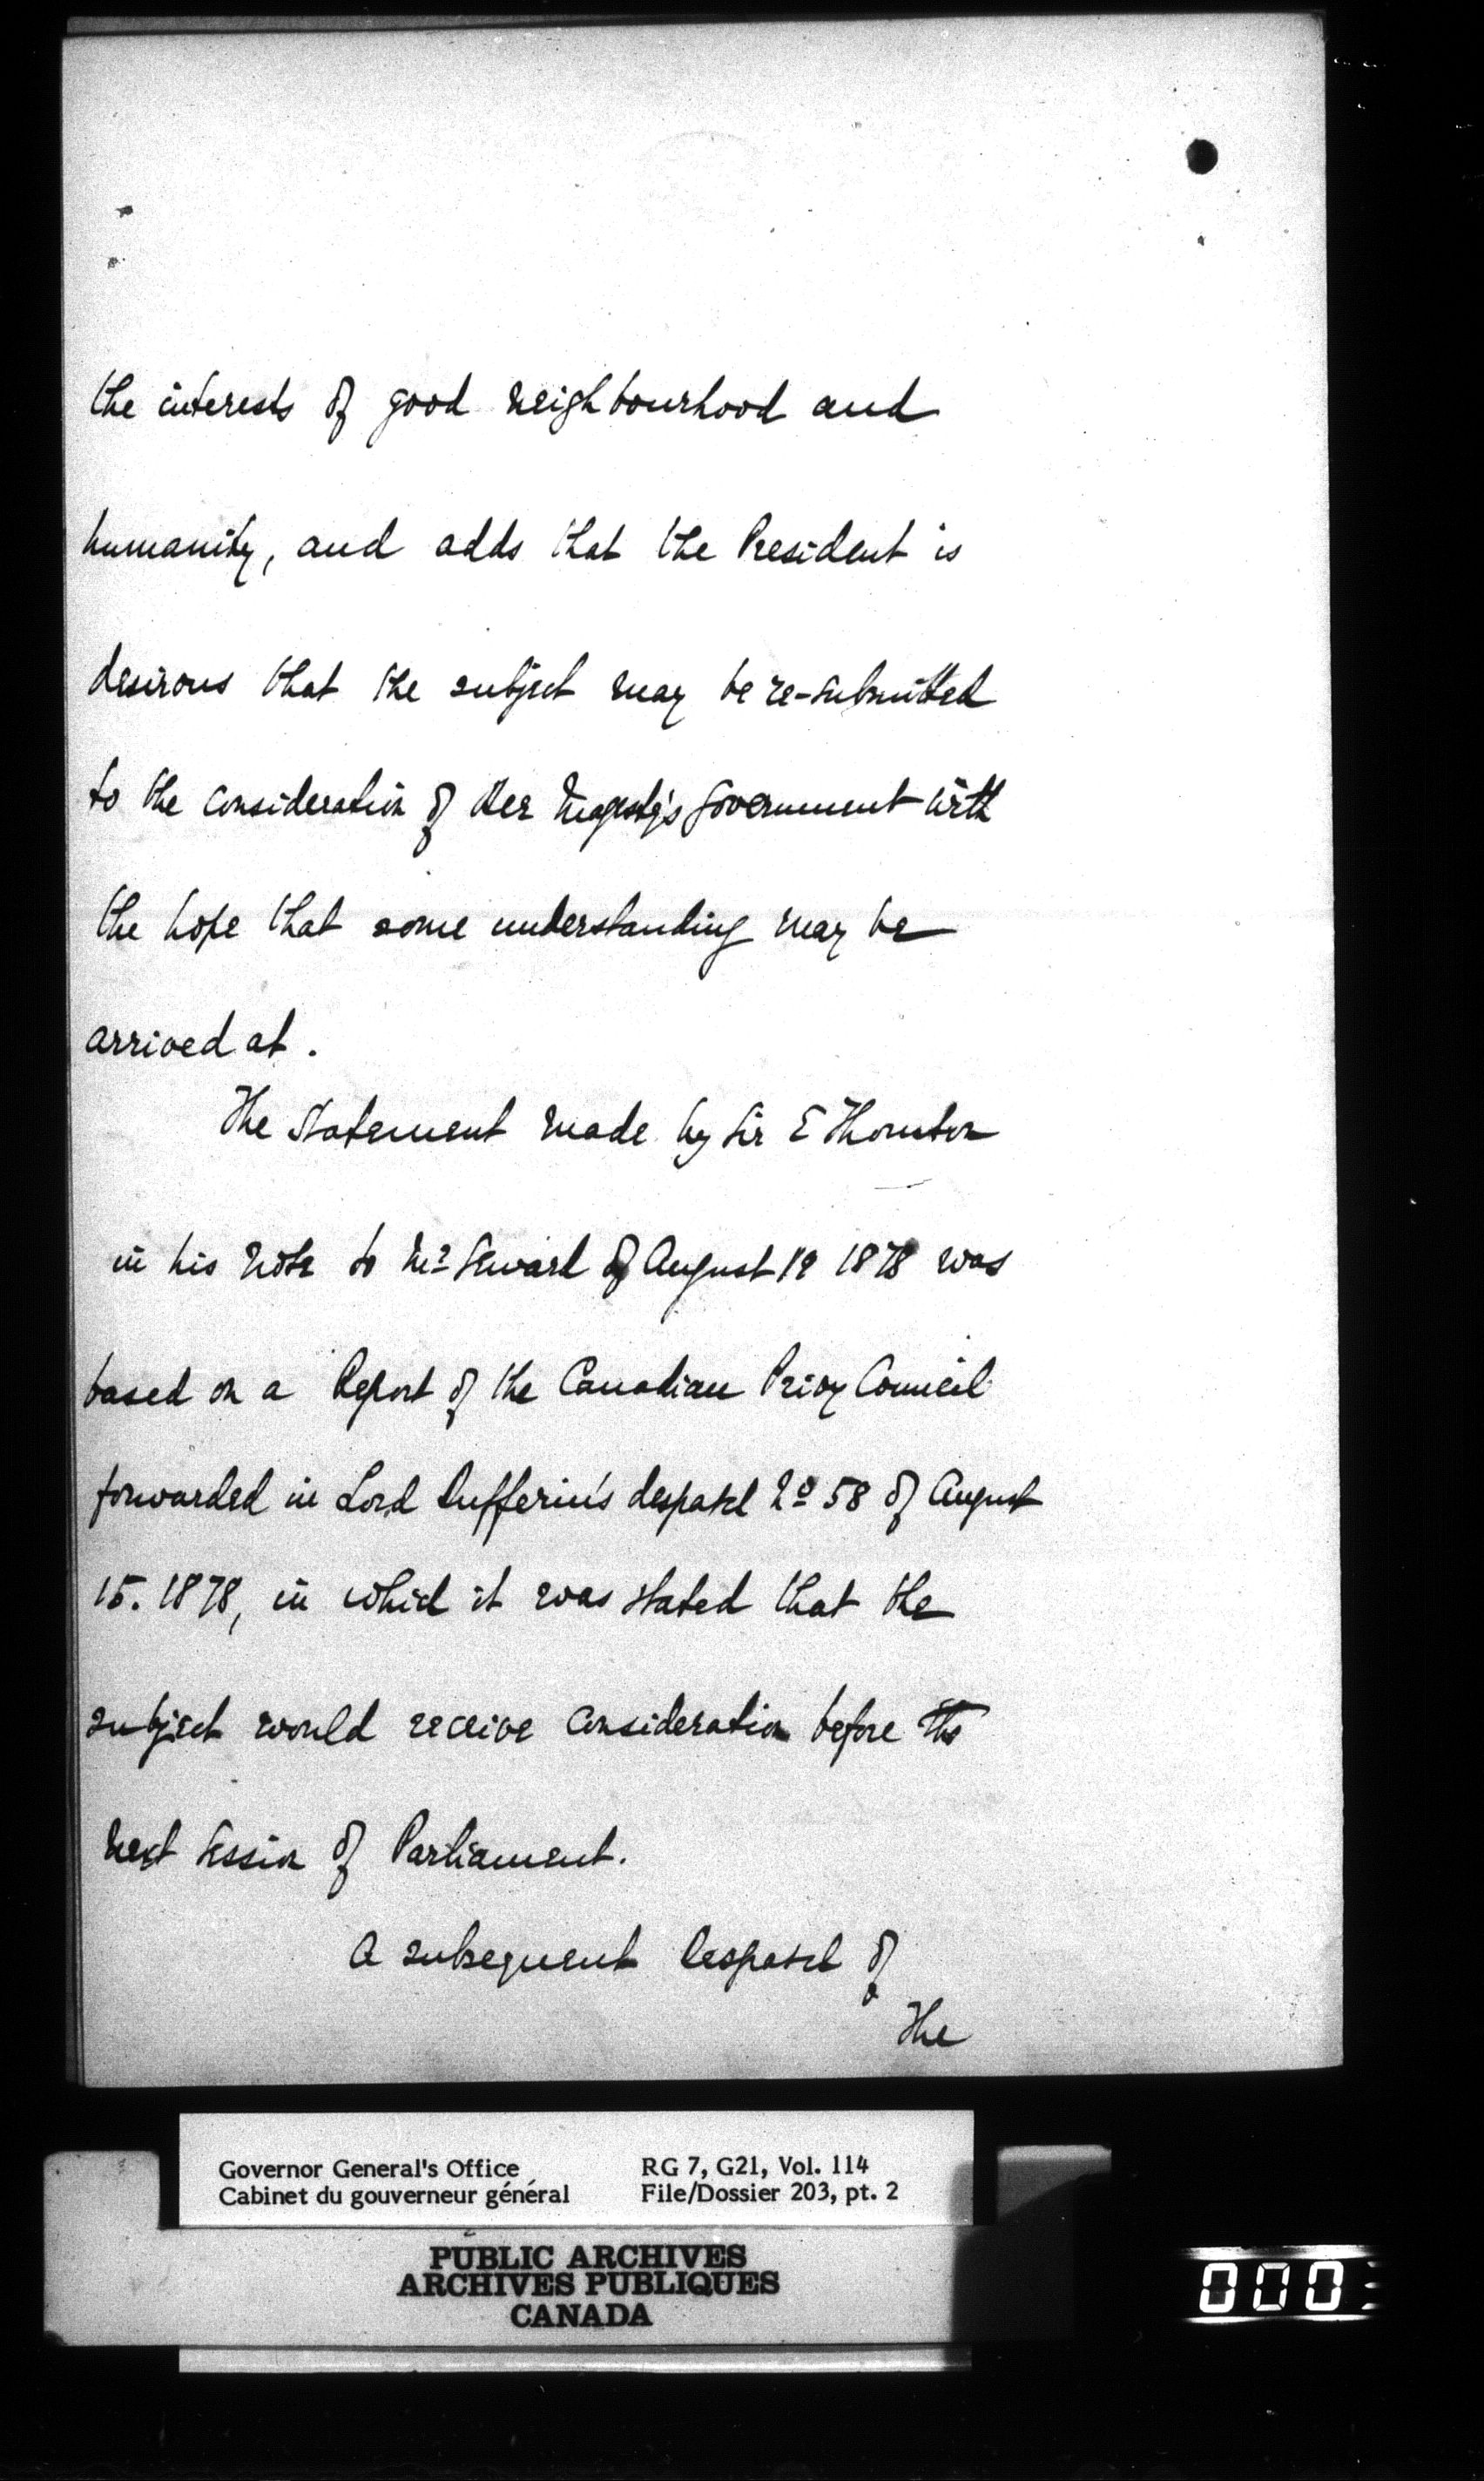 the interests of good neighbourhood and
humanity, and adds that the President is
desirous that the subject may be re-submitted
to the consideration of Her Majesty's Government with
the hope that some understanding may be
arrived at.
The statement made by Sir E Thornton
in his note to Mr Seward of August 19 1878 was
based on a Report of the Canadian Privy Council
forwarded in Lord Dufferin's despatch No 58 of August
15. 1878, in which it was stated that the
subject would receive consideration before the
next session of Parliament.
A subsequent Despatch of
The
Governor General's Office RG 7, G21, Vol. 114
Cabinet du gouverneur général File/Dossier 203, pt. 2
PUBLIC ARCHIVES
ARCHIVES PUBLIQUES
CANADA
000